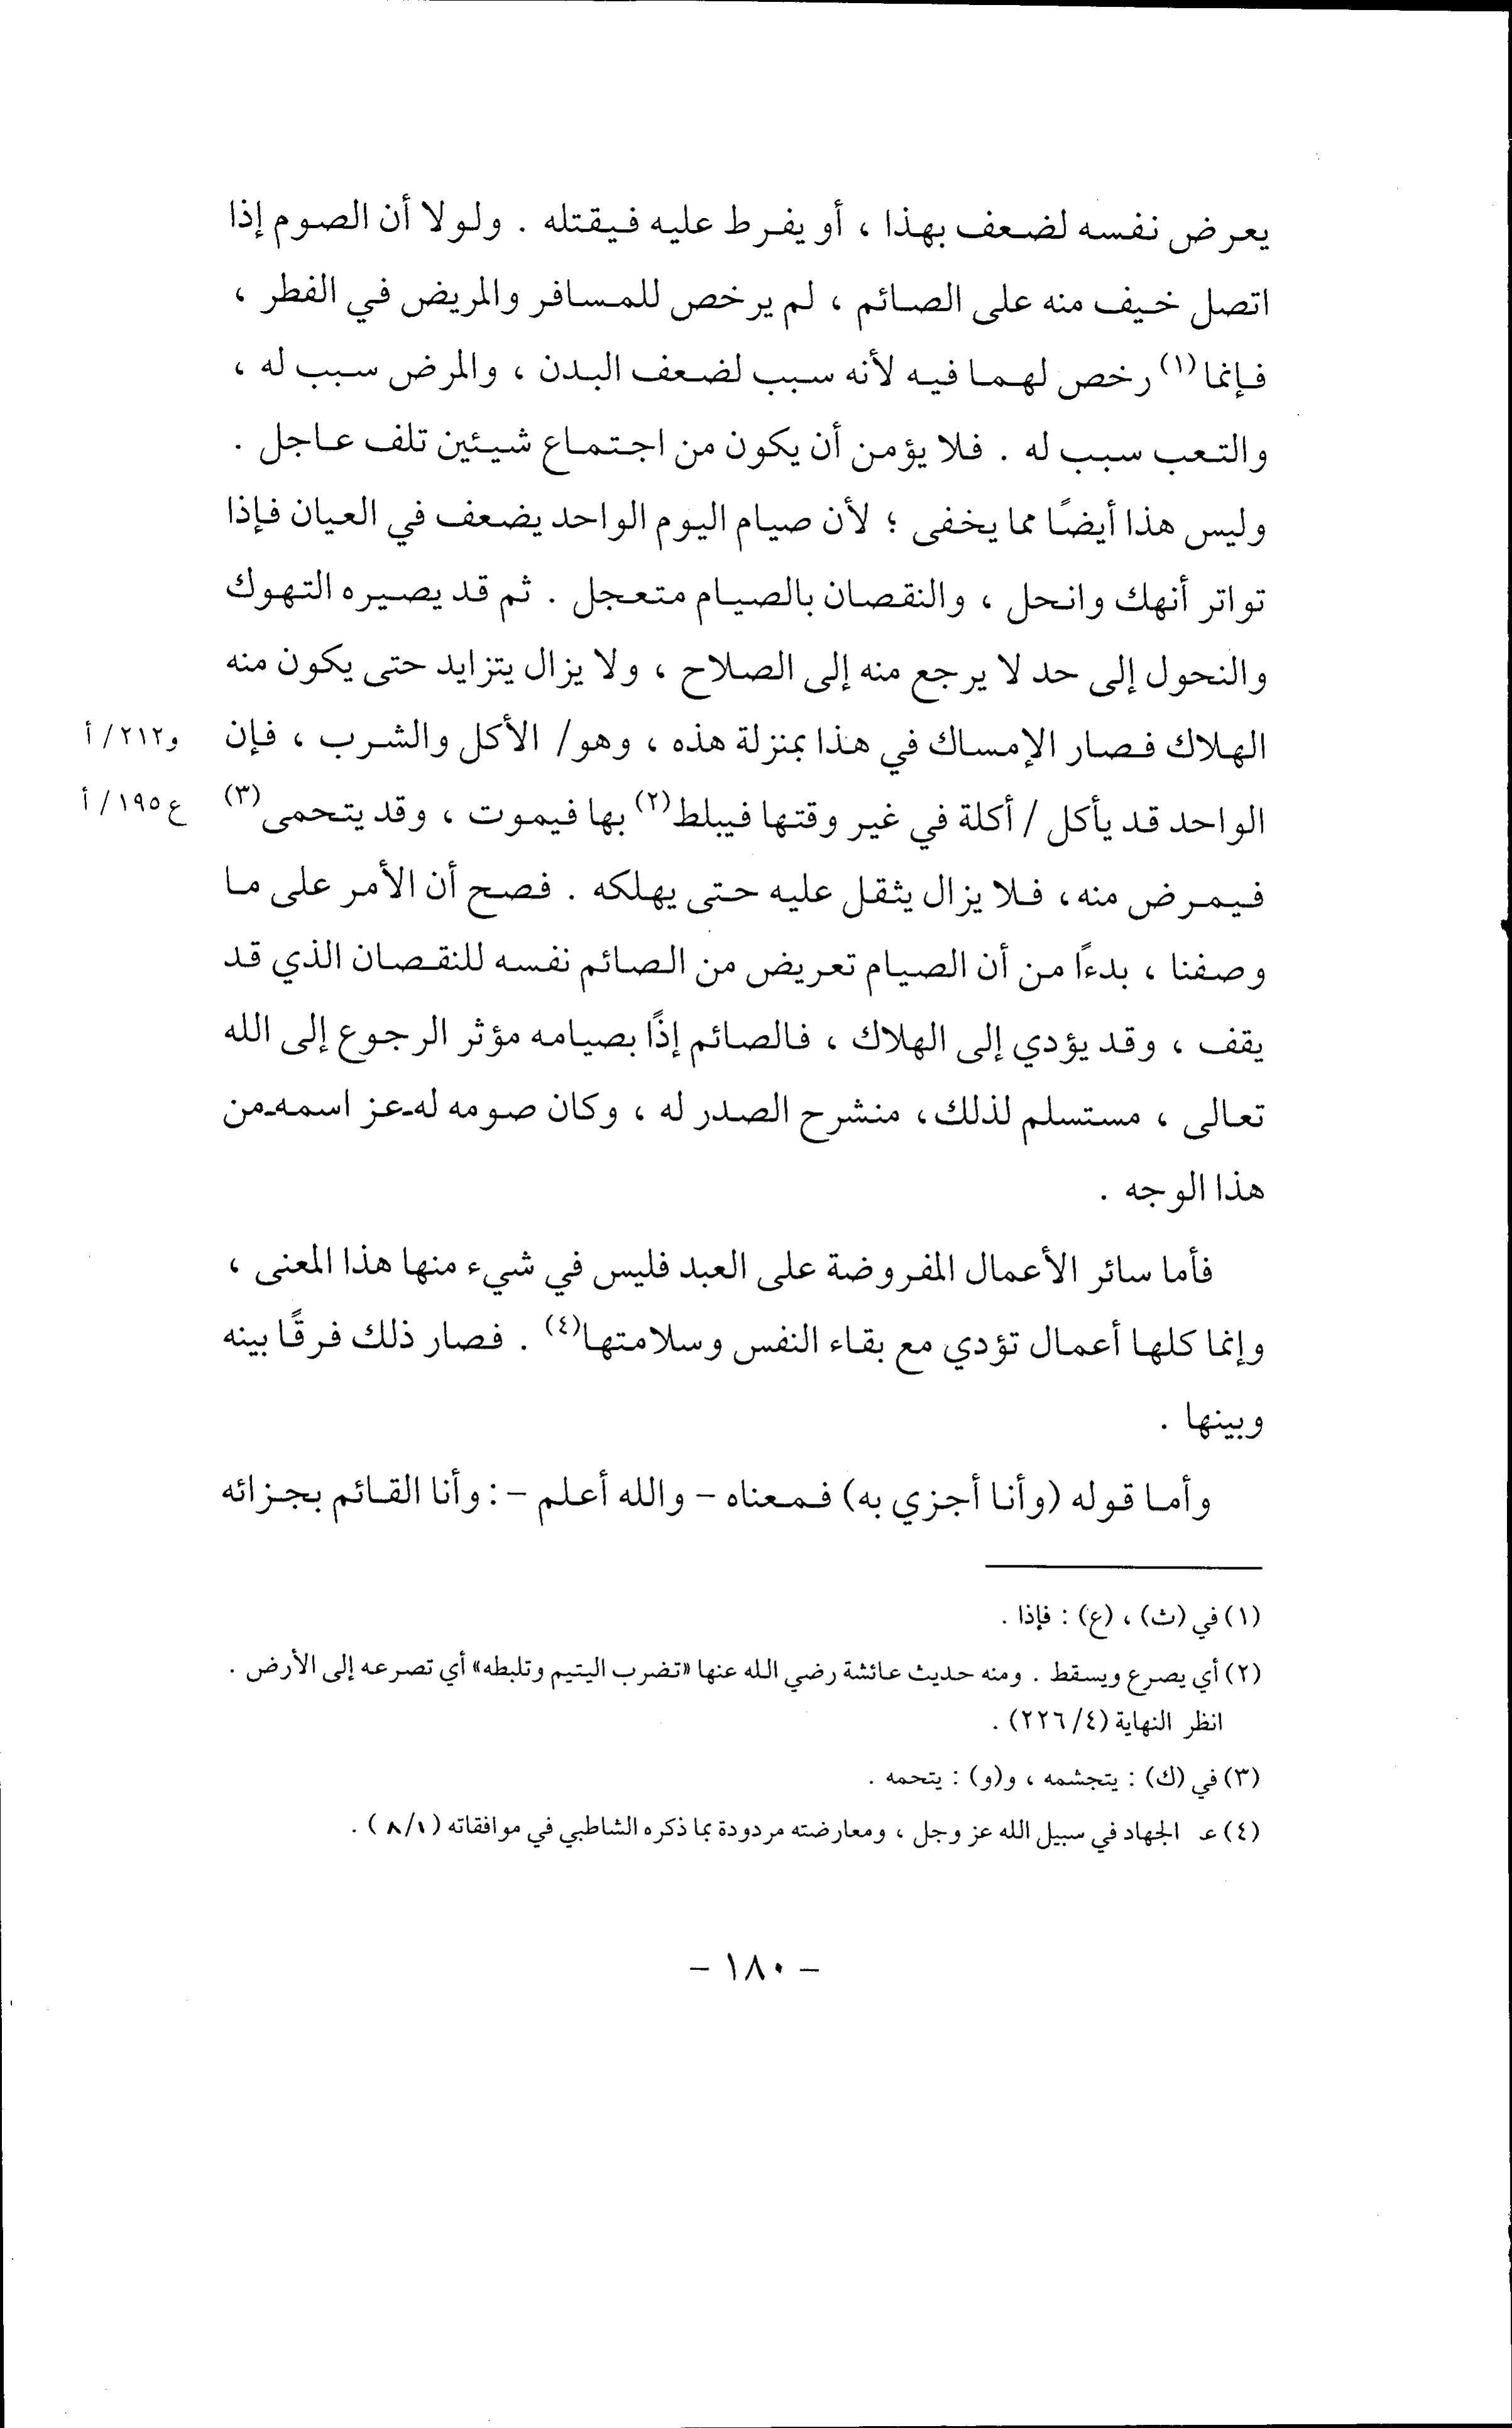 يعرض نفسه لضعف بهذا ، أو يفرط عليه فيقتله . ولولا أن الصوم إذا
اتصل خيف منه على الصائم ، لم يرخص للمسافر والمريض في الفطر ،
فإنما(١) رخص لهما فيه لأنه سبب لضعف البدن ، والمرض سبب له ،
والتعب سبب له . فلا يؤمن أن يكون من اجتماع شيئين تلف عاجل .
وليس هذا أيضًا مما يخفى ؛ لأن صيام اليوم الواحد يضعف في العيان فإذا
تواتر أنهك وانحل ، والنقصان بالصيام متعجل . ثم قد يصيره التهوك
والنحول إلى حد لا يرجع منه إلى الصلاح ، ولا يزال يتزايد حتى يكون منه
الهلاك فصار الإمساك في هذا بمنزلة هذه ، وهو/ الأكل والشرب ، فإن و٢١٢/ أ
الواحد قد يأكل / أكلة في غير وقتها فيبلط(٢) بها فيموت ، وقد يتحمى(٣) ع١٩٥/ أ
فيمرض منه، فلا يزال يثقل عليه حتى يهلكه . فصح أن الأمر على ما
وصفنا ، بدءًا من أن الصيام تعريض من الصائم نفسه للنقصان الذي قد
يقف ، وقد يؤدي إلى الهلاك ، فالصائم إذًا بصيامه مؤثر الرجوع إلى الله
تعالى ، مستسلم لذلك، منشرح الصدر له ، وكان صومه له-عز اسمه-من
هذا الوجه .
فأما سائر الأعمال المفروضة على العبد فليس في شيء منها هذا المعنى ،
وإنما كلها أعمال تؤدي مع بقاء النفس وسلامتها(٤) . فصار ذلك فرقًا بينه
وبينها .
وأما قوله (وأنا أجزي به) فمعناه - والله أعلم - : وأنا القائم بجزائه
(١) في (ث) ، (ع) : فإذا .
(٢) أي يصرع ويسقط . ومنه حديث عائشة رضي الله عنها «تضرب اليتيم وتلبطه» أي تصرعه إلى الأرض .
انظر النهاية (٤/ ٢٢٦) .
(٣) في (ك) : يتجشمه ، و(و) : يتحمه .
(٤) الجهاد في سبيل الله عز وجل ، ومعارضته مردودة بما ذكره الشاطبي في موافقاته (٨/١ ) .
- ١٨٠ -